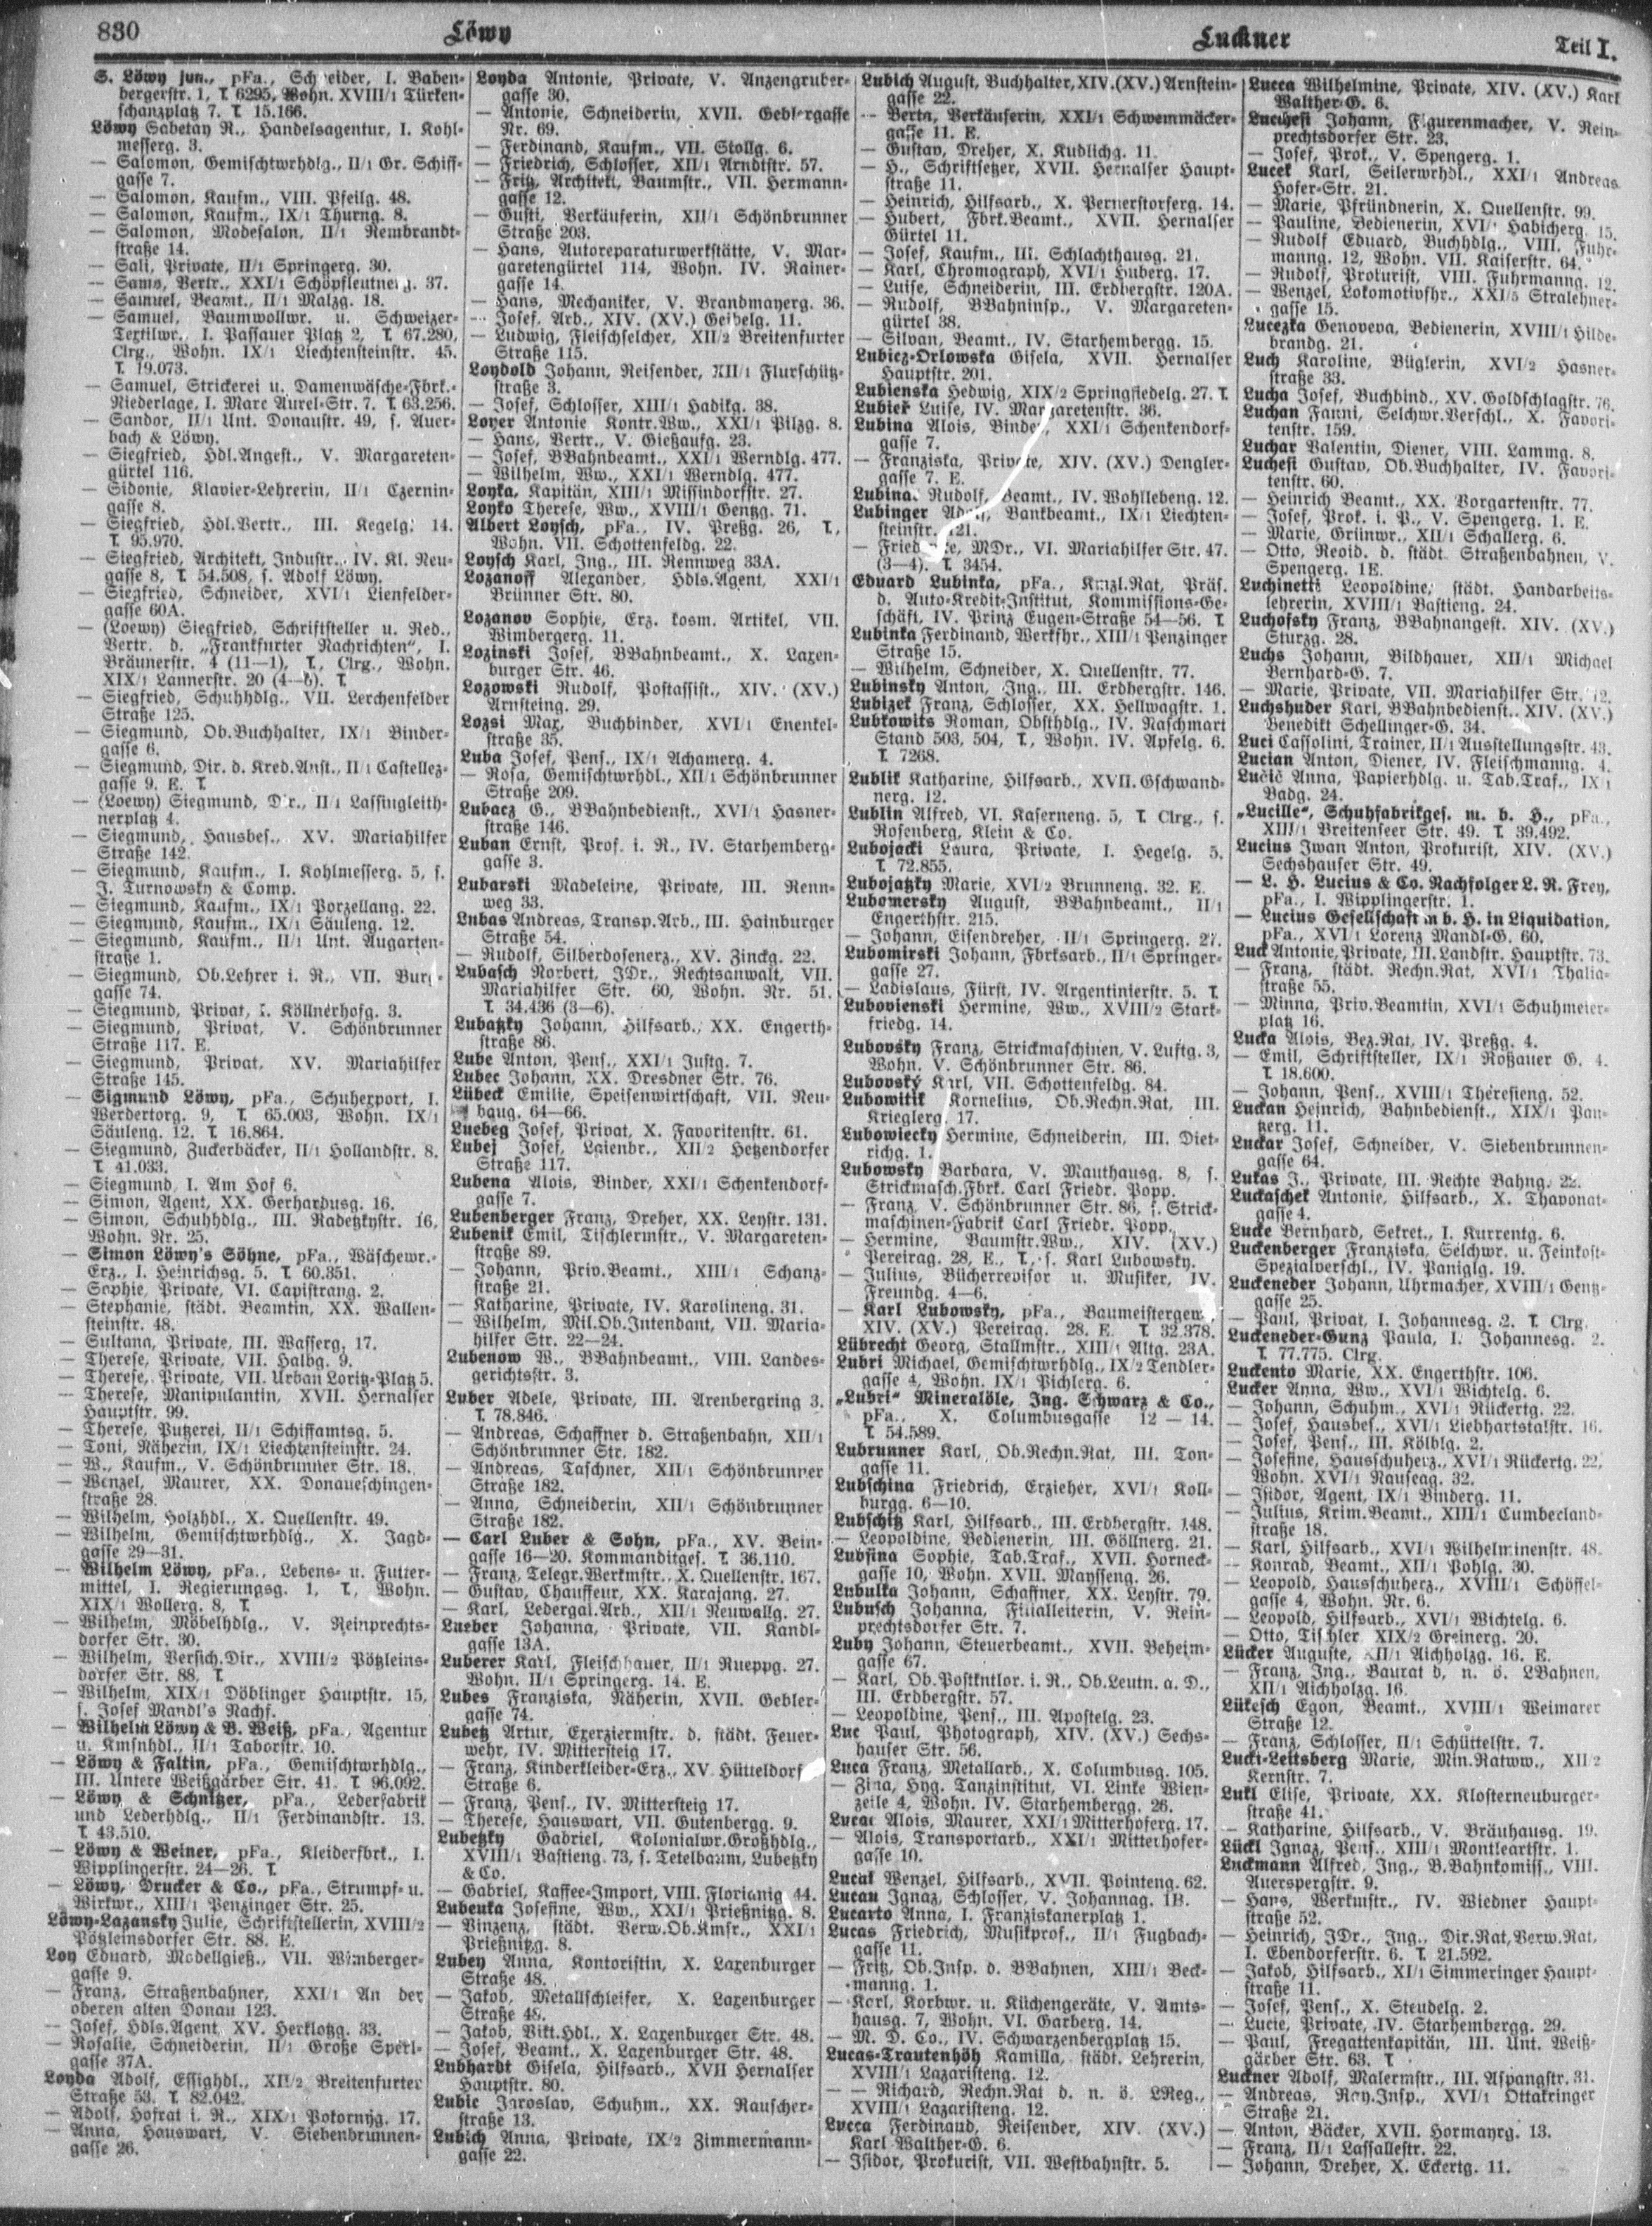 830
Löwy
Luckner
Teil I.
S. Löwy jun., pFa., Schneider, I. Baben-
bergerstr. 1, T. 6295, Wohn. XVIII/1 Türken-
schanzplatz 7. T. 15.166.
Löwy Sabetay R., Handelsagentur, I. Kohl-
messerg. 3.
— Salomon, Gemischtwrhdlg., II/1 Gr. Schiff-
gasse 7.
— Salomon, Kaufm., VIII. Pfeilg. 48.
— Salomon, Kaufm., IX/1 Thurng. 8.
— Salomon, Modesalon, II/1 Rembrandt-
straße 14.
— Sali, Private, II/1 Springerg. 30.
— Samo, Vertr., XXI/1 Schöpfleutnerg. 37.
— Samuel, Beamt., II/1 Malzg. 18.
— Samuel, Baumwollwr. u. Schweizer-
Textilwr., I. Passauer Platz 2, T. 67.280,
Clrg., Wohn. IX/1 Liechtensteinstr. 45.
T. 19.073.
— Samuel, Strickerei u. Damenwäsche-Fbrk.-
Niederlage, I. Marc Aurel-Str. 7. T. 63.256.
— Sandor, II/1 Unt. Donaustr. 49, s. Auer-
bach & Löwy.
— Siegfried, Hdl.Angest., V. Margareten-
gürtel 116.
— Sidonie, Klavier-Lehrerin, II/1 Czernin-
gasse 8.
— Siegfried, Hdl.Vertr., III. Kegelg. 14.
T. 95.970.
— Siegfried, Architekt, Industr., IV. Kl. Neu-
gasse 8, T. 54.508, s. Adolf Löwy.
— Siegfried, Schneider, XVI/1 Lienfelder-
gasse 60A.
— (Loewy) Siegfried, Schriftsteller u. Red.,
Vertr. d. „Frankfurter Nachrichten“, I.
Bräunerstr. 4 (11—1), T., Clrg., Wohn.
XIX/1 Lannerstr. 20 (4—6). T.
— Siegfried, Schuhhdlg., VII. Lerchenfelder
Straße 125.
— Siegmund, Ob.Buchhalter, IX/1 Binder-
gasse 6.
— Siegmund, Dir. d. Kred.Anst., II/1 Castellez-
gasse 9. E. T.
— (Loewy) Siegmund, Dr., II/1 Lassingleith-
nerplatz 4.
— Siegmund, Hausbes., XV. Mariahilfer
Straße 142.
— Siegmund, Kaufm., I. Kohlmesserg. 5, s.
J. Turnowsky & Comp.
— Siegmund, Kaufm., IX/1 Porzellang. 22.
— Siegmund, Kaufm., IX/1 Säuleng. 12.
— Siegmund, Kaufm., II/1 Unt. Augarten-
straße 1.
— Siegmund, Ob.Lehrer i. R., VII. Burg-
gasse 74.
— Siegmund, Privat, I. Köllnerhofg. 3.
— Siegmund, Privat, V. Schönbrunner
Straße 117. E.
— Siegmund, Privat, XV. Mariahilfer
Straße 145.
— Sigmund Löwy, pFa., Schuhexport, I.
Werdertorg. 9, T. 65.003, Wohn. IX/1
Säuleng. 12. T. 16.864.
— Siegmund, Zuckerbäcker, II/1 Hollandstr. 8.
T. 41.033.
— Siegmund, I. Am Hof 6.
— Simon, Agent, XX. Gerhardusg. 16.
— Simon, Schuhhdlg., III. Radetzkystr. 16,
Wohn. Nr. 25.
— Simon Löwy's Söhne, pFa., Wäschewr.-
Erz., I. Heinrichsg. 5. T. 60.351.
— Sophie, Private, VI. Capistrang. 2.
— Stephanie, städt. Beamtin, XX. Wallen-
steinstr. 48.
— Sultana, Private, III. Wasserg. 17.
— Therese, Private, VII. Halbg. 9.
— Therese, Private, VII. Urban Loritz-Platz 5.
— Therese, Manipulantin, XVII. Hernalser
Hauptstr. 99.
— Therese, Putzerei, II/1 Schiffamtsg. 5.
— Toni, Näherin, IX/1 Liechtensteinstr. 24.
— W., Kaufm., V. Schönbrunner Str. 18.
— Wenzel, Maurer, XX. Donaueschingen-
straße 28.
— Wilhelm, Holzhdl., X. Quellenstr. 49.
— Wilhelm, Gemischtwrhdlg., X. Jagd-
gasse 29—31.
— Wilhelm Löwy, pFa., Lebens- u. Futter-
mittel, I. Regierungsg. 1, T., Wohn.
XIX/1 Wollerg. 8, T.
— Wilhelm, Möbelhdlg., V. Reinprechts-
dorfer Str. 30.
— Wilhelm, Versich.Dir., XVIII/2 Pötzleins-
dorfer Str. 88, T.
— Wilhelm, XIX/1 Döblinger Hauptstr. 15,
s. Josef Mandl's Nachf.
— Wilhelm Löwy & B. Weiß, pFa., Agentur
u. Kmsnhdl., II/1 Taborstr. 10.
— Löwy & Faltin, pFa., Gemischtwrhdlg.,
III. Untere Weißgärber Str. 41. T. 96.092.
— Löwy & Schnitzer, pFa., Lederfabrik
und Lederhdlg., II/1 Ferdinandstr. 13.
T. 43.510.
— Löwy & Weiner, pFa., Kleiderfbrk., I.
Wipplingerstr. 24—26. T.
— Löwy, Drucker & Co., pFa., Strumpf- u.
Wirkwr., XIII/1 Penzinger Str. 25.
Löwy-Lazansky Julie, Schriftstellerin, XVIII/2
Pötzleinsdorfer Str. 88. E.
Loy Eduard, Modellgieß., VII. Wimberger-
gasse 9.
— Franz, Straßenbahner, XXI/1 An der
oberen alten Donau 123.
— Josef, Hdls.Agent, XV. Herklotzg. 33.
— Rosalie, Schneiderin, II/1 Große Sperl-
gasse 37A.
Loyda Adolf, Essighdl., XII/2 Breitenfurter
Straße 53. T. 82.042.
— Adolf, Hofrat i. R., XIX/1 Pokornyg. 17.
— Anna, Hauswart, V. Siebenbrunnen-
gasse 26.
Loyda Antonie, Private, V. Anzengruber-
gasse 30.
— Antonie, Schneiderin, XVII. Geblergasse
Nr. 69.
— Ferdinand, Kaufm., VII. Stollg. 6.
— Friedrich, Schlosser, XII/1 Arndtstr. 57.
— Fritz, Architekt, Baumstr., VII. Hermann-
gasse 12.
— Gusti, Verkäuferin, XII/1 Schönbrunner
Straße 203.
— Hans, Autoreparaturwerkstätte, V. Mar-
garetengürtel 114, Wohn. IV. Rainer-
gasse 14.
— Hans, Mechaniker, V. Brandmayerg. 36.
— Josef, Arb., XIV. (XV.) Geibelg. 11.
— Ludwig, Fleischselcher, XII/2 Breitenfurter
Straße 115.
Loydold Johann, Reisender, XII/1 Flurschütz-
straße 3.
— Josef, Schlosser, XIII/1 Hadikg. 38.
Loyer Antonie Kontr.Ww., XXI/1 Pilzg. 8.
— Hans, Vertr., V. Gießaufg. 23.
— Josef, BBahnbeamt., XXI/1 Werndlg. 477.
— Wilhelm, Ww., XXI/1 Werndlg. 477.
Loyka, Kapitän, XIII/1 Missindorfstr. 27.
Loyko Therese, Ww., XVIII/1 Gentzg. 71.
Albert Loysch, pFa., IV. Preßg. 26, T.,
Wohn. VII. Schottenfeldg. 22.
Loysch Karl, Ing., III. Rennweg 33A.
Lozanoff Alexander, Hdls.Agent, XXI/1
Brünner Str. 80.
Lozanov Sophie, Erz. kosm. Artikel, VII.
Wimbergerg. 11.
Lozinski Josef, BBahnbeamt., X. Laxen-
burger Str. 46.
Lozowski Rudolf, Postassist., XIV. (XV.)
Arnsteing. 29.
Lozsi Max, Buchbinder, XVI/1 Enenkel-
straße 35.
Luba Josef, Pens., IX/1 Achamerg. 4.
— Rosa, Gemischtwrhdl., XII/1 Schönbrunner
Straße 209.
Lubacz G., BBahnbedienst., XVI/1 Hasner-
straße 146.
Luban Ernst, Prof. i. R., IV. Starhemberg-
gasse 3.
Lubarski Madeleine, Private, III. Renn-
weg 33.
Lubas Andreas, Transp.Arb., III. Hainburger
Straße 54.
— Rudolf, Silberdosenerz., XV. Zinckg. 22.
Lubasch Norbert, JDr., Rechtsanwalt, VII.
Mariahilfer Str. 60, Wohn. Nr. 51.
T. 34.436 (3—6).
Lubatzky Johann, Hilfsarb., XX. Engerth-
straße 86.
Lube Anton, Pens., XXI/1 Justg. 7.
Lubec Johann, XX. Dresdner Str. 76.
Lübeck Emilie, Speisenwirtschaft, VII. Neu-
baug. 64—66.
Luebeg Josef, Privat, X. Favoritenstr. 61.
Lubej Josef, Laienbr., XII/2 Hetzendorfer
Straße 117.
Lubena Alois, Binder, XXI/1 Schenkendorf-
gasse 7.
Lubenberger Franz, Dreher, XX. Leystr. 131.
Lubenik Emil, Tischlermstr., V. Margareten-
straße 89.
— Johann, Priv.Beamt., XIII/1 Schanz-
straße 21.
— Katharine, Private, IV. Karolineng. 31.
— Wilhelm, Mil.Ob.Intendant, VII. Maria-
hilfer Str. 22—24.
Lubenow W., BBahnbeamt., VIII. Landes-
gerichtsstr. 3.
Luber Adele, Private, III. Arenbergring 3.
T. 78.846.
— Andreas, Schaffner d. Straßenbahn, XII/1
Schönbrunner Str. 182.
— Andreas, Taschner, XII/1 Schönbrunner
Straße 182.
— Anna, Schneiderin, XII/1 Schönbrunner
Straße 182.
— Carl Luber & Sohn, pFa., XV. Bein-
gasse 16—20. Kommanditges. T. 36.110.
— Franz, Telegr.Werkmstr., X. Quellenstr. 167.
— Gustav, Chauffeur, XX. Karajang. 27.
— Karl, Ledergal.Arb., XII/1 Neuwallg. 27.
Lueber Johanna, Private, VII. Kandl-
gasse 13A.
Luberer Karl, Fleischhauer, II/1 Rueppg. 27.
Wohn. II/1 Springerg. 14. E.
Lubes Franziska, Näherin, XVII. Gebler-
gasse 74.
Lubetz Artur, Exerziermstr. d. städt. Feuer-
wehr, IV. Mittersteig 17.
— Franz, Kinderkleider-Erz., XV. Hütteldorf
Straße 6.
— Franz, Pens., IV. Mittersteig 17.
— Therese, Hauswart, VII. Gutenbergg. 9.
Lubetzky Gabriel, Kolonialwr.Großhdlg.,
XVIII/1 Bastieng. 73, s. Tetelbaum, Lubetzky
& Co.
— Gabriel, Kaffee-Import, VIII. Florianig. 44.
Lubeuka Josefine, Ww., XXI/1 Prießnitzg. 8.
— Vinzenz, städt. Verw.Ob.Kmsr., XXI/1
Prießnitzg. 8.
Lubey Anna, Kontoristin, X. Laxenburger
Straße 48.
— Jakob, Metallschleifer, X. Laxenburger
Straße 48.
— Jakob, Vikt.Hdl., X. Laxenburger Str. 48.
— Josef, Beamt., X. Laxenburger Str. 48.
Lubhardt Gisela, Hilfsarb., XVII Hernalser
Hauptstr. 80.
Lubic Jaroslav, Schuhm., XX. Rauscher-
straße 13.
Lubich Anna, Private, IX/2 Zimmermann-
gasse 22.
Lubich August, Buchhalter, XIV. (XV.) Arnstein-
gasse 22.
— Berta, Verkäuferin, XXI/1 Schwemmäcker-
gasse 11. E.
— Gustav, Dreher, X. Kudlichg. 11.
— H., Schriftsetzer, XVII. Hernalser Haupt-
straße 11.
— Heinrich, Hilfsarb., X. Pernerstorferg. 14.
— Hubert, Fbrk.Beamt., XVII. Hernalser
Gürtel 11.
— Josef, Kaufm., III. Schlachthausg. 21.
— Karl, Chromograph, XVI/1 Huberg. 17.
— Luise, Schneiderin, III. Erdbergstr. 120A.
— Rudolf, BBahninsp., V. Margareten-
gürtel 38.
— Silvan, Beamt., IV. Starhembergg. 15.
Lubicz-Orlowska Gisela, XVII. Hernalser
Hauptstr. 201.
Lubienska Hedwig, XIX/2 Springsiedelg. 27. T.
Lubier Luise, IV. Margaretenstr. 36.
Lubina Alois, Binder, XXI/1 Schenkendorf-
gasse 7.
— Franziska, Private, XIV. (XV.) Dengler-
gasse 7. E.
Lubina Rudolf, Beamt., IV. Wohllebeng. 12.
Lubinger Adolf, Bankbeamt., IX/1 Liechten-
steinstr. 121.
— Friederike, MDr., VI. Mariahilfer Str. 47.
(3—4). T. 3454.
Eduard Lubinka, pFa., Kmzl.Rat, Präs.
d. Auto-Kredit-Institut, Kommissions-Ge-
schäft, IV. Prinz Eugen-Straße 54—56. T.
Lubinka Ferdinand, Werkfhr., XIII/1 Penzinger
Straße 15.
— Wilhelm, Schneider, X. Quellenstr. 77.
Lubinsky Anton, Ing., III. Erdbergstr. 146.
Lubizek Franz, Schlosser, XX. Hellwagstr. 1.
Lubkowits Roman, Obsthdlg., IV. Naschmart
Stand 503, 504, T., Wohn. IV. Apfelg. 6.
T. 7268.
Lublik Katharine, Hilfsarb., XVII. Gschwand-
nerg. 12.
Lublin Alfred, VI. Kaserneng. 5, T. Clrg., s.
Rosenberg, Klein & Co.
Lubojacki Laura, Private, I. Hegelg. 5.
T. 72.855.
Lubojatzky Marie, XVI/2 Brunneng. 32. E.
Lubomersky August, BBahnbeamt., II/1
Engerthstr. 215.
— Johann, Eisendreher, II/1 Springerg. 27.
Lubomirski Johann, Fbrksarb., II/1 Springer-
gasse 27.
— Ladislaus, Fürst, IV. Argentinierstr. 5. T.
Lubovienski Hermine, Ww., XVIII/2 Stark-
friedg. 14.
Lubovsky Franz, Strickmaschinen, V. Luftg. 3,
Wohn. V. Schönbrunner Str. 86.
Lubovský Karl, VII. Schottenfeldg. 84.
Lubowitik Kornelius, Ob.Rechn.Rat, III.
Kriegler g. 17.
Lubowiecky Hermine, Schneiderin, III. Diet-
richg. 1.
Lubowsky Barbara, V. Mauthausg. 8, s.
Strickmasch.Fbrk. Carl Friedr. Popp.
— Franz, V. Schönbrunner Str. 86, s. Strick-
maschinen-Fabrik Carl Friedr. Popp.
— Hermine, Baumstr.Ww., XIV. (XV.)
Pereirag. 28, E., T., s. Karl Lubowsky.
— Julius, Bücherrevisor u. Musiker, IV.
Freundg. 4—6.
— Karl Lubowsky, pFa., Baumeistergew.
XIV. (XV.) Pereirag. 28. E. T. 32.378.
Lübrecht Georg, Stallmstr., XIII/1 Altg. 23A.
Lubri Michael, Gemischtwrhdlg., IX/2 Tendler-
gasse 4, Wohn. IX/1 Pichlerg. 6.
„Lubri“ Mineralöle, Ing. Schwarz & Co.,
pFa., X. Columbusgasse 12 — 14.
T. 54.589.
Lubrunner Karl, Ob.Rechn.Rat, III. Ton-
gasse 11.
Lubschina Friedrich, Erzieher, XVI/1 Koll-
burgg. 6—10.
Lubschitz Karl, Hilfsarb., III. Erdbergstr. 148.
— Leopoldine, Bedienerin, III. Göllnerg. 21.
Lubsina Sophie, Tab.Traf., XVII. Horneck-
gasse 10, Wohn. XVII. Mayßeng. 26.
Lubulka Johann, Schaffner, XX. Leystr. 79.
Lubusch Johanna, Filialleiterin, V. Rein-
prechtsdorfer Str. 7.
Luby Johann, Steuerbeamt., XVII. Beheim-
gasse 67.
— Karl, Ob.Postkntlor. i. R., Ob.Leutn. a. D.,
III. Erdbergstr. 57.
— Leopoldine, Pens., III. Apostelg. 23.
Luc Paul, Photograph, XIV. (XV.) Sechs-
hauser Str. 56.
Luca Franz, Metallarb., X. Columbusg. 105.
— Zina, Hyg. Tanzinstitut, VI. Linke Wien-
zeile 4, Wohn. IV. Starhembergg. 26.
Lucac Alois, Maurer, XXI/1 Mitterhoferg. 17.
— Alois, Transportarb., XXI/1 Mitterhofer-
gasse 10.
Lucak Wenzel, Hilfsarb., XVII. Pointeng. 62.
Lucan Ignaz, Schlosser, V. Johannag. 1B.
Lucarto Anna, I. Franziskanerplatz 1.
Lucas Friedrich, Musikprof., II/1 Fugbach-
gasse 11.
— Fritz, Ob.Insp. d. BBahnen, XIII/1 Beck-
manng. 1.
— Karl, Korbwr. u. Küchengeräte, V. Amts-
hausg. 7, Wohn. VI. Garberg. 14.
— M. D. Co., IV. Schwarzenbergplatz 15.
Lucas-Trautenhöh Kamilla, städt. Lehrerin,
XVIII/1 Lazaristeng. 12.
— — Richard, Rechn.Rat d. n. ö. LReg.,
XVIII/1 Lazaristeng. 12.
Lucca Ferdinand, Reisender, XIV. (XV.)
Karl Walther-G. 6.
— Isidor, Prokurist, VII. Westbahnstr. 5.
Lucca Wilhelmine, Private, XIV. (XV.) Karl
Walther-G. 6.
Lucchesi Johann, Figurenmacher, V. Rein-
prechtsdorfer Str. 23.
— Josef, Prok., V. Spengerg. 1.
Lucek Karl, Seilerwrhdl., XXI/1 Andreas
Hofer-Str. 21.
— Marie, Pfründnerin, X. Quellenstr. 99.
— Pauline, Bedienerin, XVI/1 Habicherg. 15.
— Rudolf Eduard, Buchhdlg., VIII. Fuhr-
manng. 12, Wohn. VII. Kaiserstr. 64.
— Rudolf, Prokurist, VIII. Fuhrmanng. 12.
— Wenzel, Lokomotivfhr., XXI/5 Stralehner-
gasse 15.
Lucezka Genoveva, Bedienerin, XVIII/1 Hilde-
brandg. 21.
Luch Karoline, Büglerin, XVI/2 Hasner-
straße 33.
Lucha Josef, Buchbind., XV. Goldschlagstr. 76.
Luchan Fanni, Selchwr.Verschl., X. Favori-
tenstr. 159.
Luchar Valentin, Diener, VIII. Lammg. 8.
Luchesi Gustav, Ob.Buchhalter, IV. Favori-
tenstr. 60.
— Heinrich Beamt., XX. Vorgartenstr. 77.
— Josef, Prok. i. P., V. Spengerg. 1. E.
— Marie, Grünwr., XII/1 Schallerg. 6.
— Otto, Revid. d. städt. Straßenbahnen, V.
Spengerg. 1E.
Luchinetti Leopoldine, städt. Handarbeits-
lehrerin, XVIII/1 Bastieng. 24.
Luchofsky Franz, BBahnangest. XIV. (XV.)
Sturzg. 28.
Luchs Johann, Bildhauer, XII/1 Michael
Bernhard-G. 7.
— Marie, Private, VII. Mariahilfer Str. 12.
Luchshuder Karl, BBahnbedienst., XIV. (XV.)
Benedikt Schellinger-G. 34.
Luci Cassolini, Trainer, II/1 Ausstellungsstr. 43.
Lucian Anton, Diener, IV. Fleischmanng. 4.
Lučić Anna, Papierhdlg. u. Tab.Traf., IX/1
Badg. 24.
„Lucille“, Schuhfabrikges. m. b. H., pFa.,
XIII/1 Breitenseer Str. 49. T. 39.492.
Lucius Iwan Anton, Prokurist, XIV. (XV.)
Sechshauser Str. 49.
— L. H. Lucius & Co. Nachfolger L. R. Frey,
pFa., I. Wipplingerstr. 1.
— Lucius Gesellschaft m b. H. in Liquidation,
pFa., XVI/1 Lorenz Mandl-G. 60.
Luck Antonie, Private, III. Landstr. Hauptstr. 73.
— Franz, städt. Rechn.Rat, XVI/1 Thalia-
straße 55.
— Minna, Priv.Beamtin, XVI/1 Schuhmeier-
platz 16.
Lucka Alois, Bez.Rat, IV. Preßg. 4.
— Emil, Schriftsteller, IX/1 Roßauer G. 4.
T. 18.600.
— Johann, Pens., XVIII/1 Theresieng. 52.
Luckan Heinrich, Bahnbedienst., XIX/1 Pan-
tzerg. 11.
Luckar Josef, Schneider, V. Siebenbrunnen-
gasse 64.
Lukas J., Private, III. Rechte Bahng. 22.
Luckaschek Antonie, Hilfsarb., X. Thavonat-
gasse 4.
Lucke Bernhard, Sekret., I. Kurrentg. 6.
Luckenberger Franziska, Selchwr. u. Feinkost-
Spezialverschl., IV. Paniglg. 19.
Luckeneder Johann, Uhrmacher, XVIII/1 Gentz-
gasse 25.
— Paul, Privat, I. Johannesg. 2. T. Clrg.
Luckeneder-Gunz Paula, I. Johannesg. 2.
T. 77.775. Clrg.
Luckento Marie, XX. Engerthstr. 106.
Lucker Anna, Ww., XVI/1 Wichtelg. 6.
— Johann, Schuhm., XVI/1 Rückertg. 22.
— Josef, Hausbes., XVI/1 Liebhartstalstr. 16.
— Josef, Pens., III. Kölblg. 2.
— Josefine, Hausschuherz., XVI/1 Rückertg. 22,
Wohn. XVI/1 Nauseag. 32.
— Isidor, Agent, IX/1 Binderg. 11.
— Julius, Krim.Beamt., XIII/1 Cumberland-
straße 18.
— Karl, Hilfsarb., XVI/1 Wilhelminenstr. 48.
— Konrad, Beamt., XII/1 Pohlg. 30.
— Leopold, Hausschuherz., XVIII/1 Schöffel-
gasse 4, Wohn. Nr. 6.
— Leopold, Hilfsarb., XVI/1 Wichtelg. 6.
— Otto, Tischler XIX/2 Greinerg. 20.
Lücker Auguste, XII/1 Aichholzg. 16. E.
— Franz, Ing., Baurat d. n. ö. LBahnen,
XII/1 Aichholzg. 16.
Lükesch Egon, Beamt., XVIII/1 Weimarer
Straße 12.
— Franz, Schlosser, II/1 Schüttelstr. 7.
Lucki-Leitsberg Marie, Min.Ratww., XII/2
Kernstr. 7.
Lukl Elise, Private, XX. Klosterneuburger-
straße 41.
— Katharine, Hilfsarb., V. Bräuhausg. 19.
Lückl Ignaz, Pens., XIII/1 Montleartstr. 1.
Luckmann Alfred, Ing., B.Bahnkomiss., VIII.
Auerspergstr. 9.
— Hans, Werkmstr., IV. Wiedner Haupt-
straße 52.
— Heinrich, JDr., Ing., Dir.Rat, Verw.Rat,
I. Ebendorferstr. 6. T. 21.592.
— Jakob, Hilfsarb., XI/1 Simmeringer Haupt-
straße 11.
— Josef, Pens., X. Steudelg. 2.
— Lucie, Private, IV. Starhembergg. 29.
— Paul, Fregattenkapitän, III. Unt. Weiß-
gärber Str. 63. T.
Luckner Adolf, Malermstr., III. Aspangstr. 31.
— Andreas, Ray.Insp., XVI/1 Ottakringer
Straße 21.
— Anton, Bäcker, XVII. Hormayrg. 13.
— Franz, II/1 Lassallestr. 22.
— Johann, Dreher, X. Eckertg. 11.